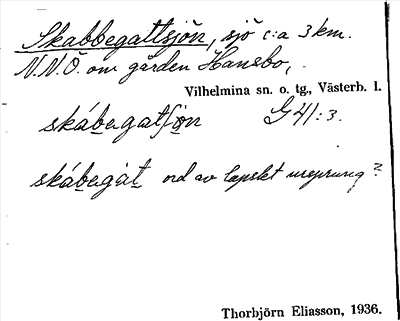 Skabbegattsjön, sjö c:a 3 km.
N.N.Ö. om gården Hansbo,
Vilhelmina sn. o. tg., Västerb. l.
skábegatſön G 41:3.
skábegàt ord av lapskt ursprung?
Thorbjörn Eliasson, 1936.